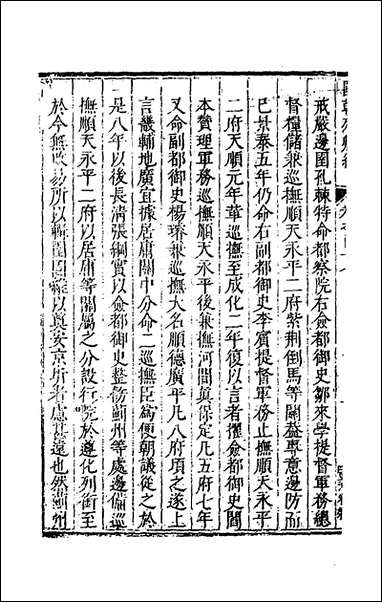 戒嚴邊圉孔棘特命都察院右僉都御史鄒來學提督軍務總
督糧儲兼巡撫順天永平二府紫荆倒馬等關葢專意邊防而
已景泰五年仍命右副都御史李賓提督軍務止撫順天永平
二府天順元年革巡撫至成化二年復以言者擢僉都御史閻
本贊理軍務巡撫順天永平後兼撫河間真保定凡五府七年
又命副都御史楊璿兼巡撫大名順德廣平凡八府項之遂上
言畿輔地廣宜據居庸關中分命二巡撫臣為便朝議從之於
是八年以後長淸張綱實以僉都御史整飭薊州等處邊備巡
撫順天永平二府以居庸等關屬之分設行院於遵化列銜至
於今無改易所以輯圍固以奠安京所者慮甚遠也然薊州